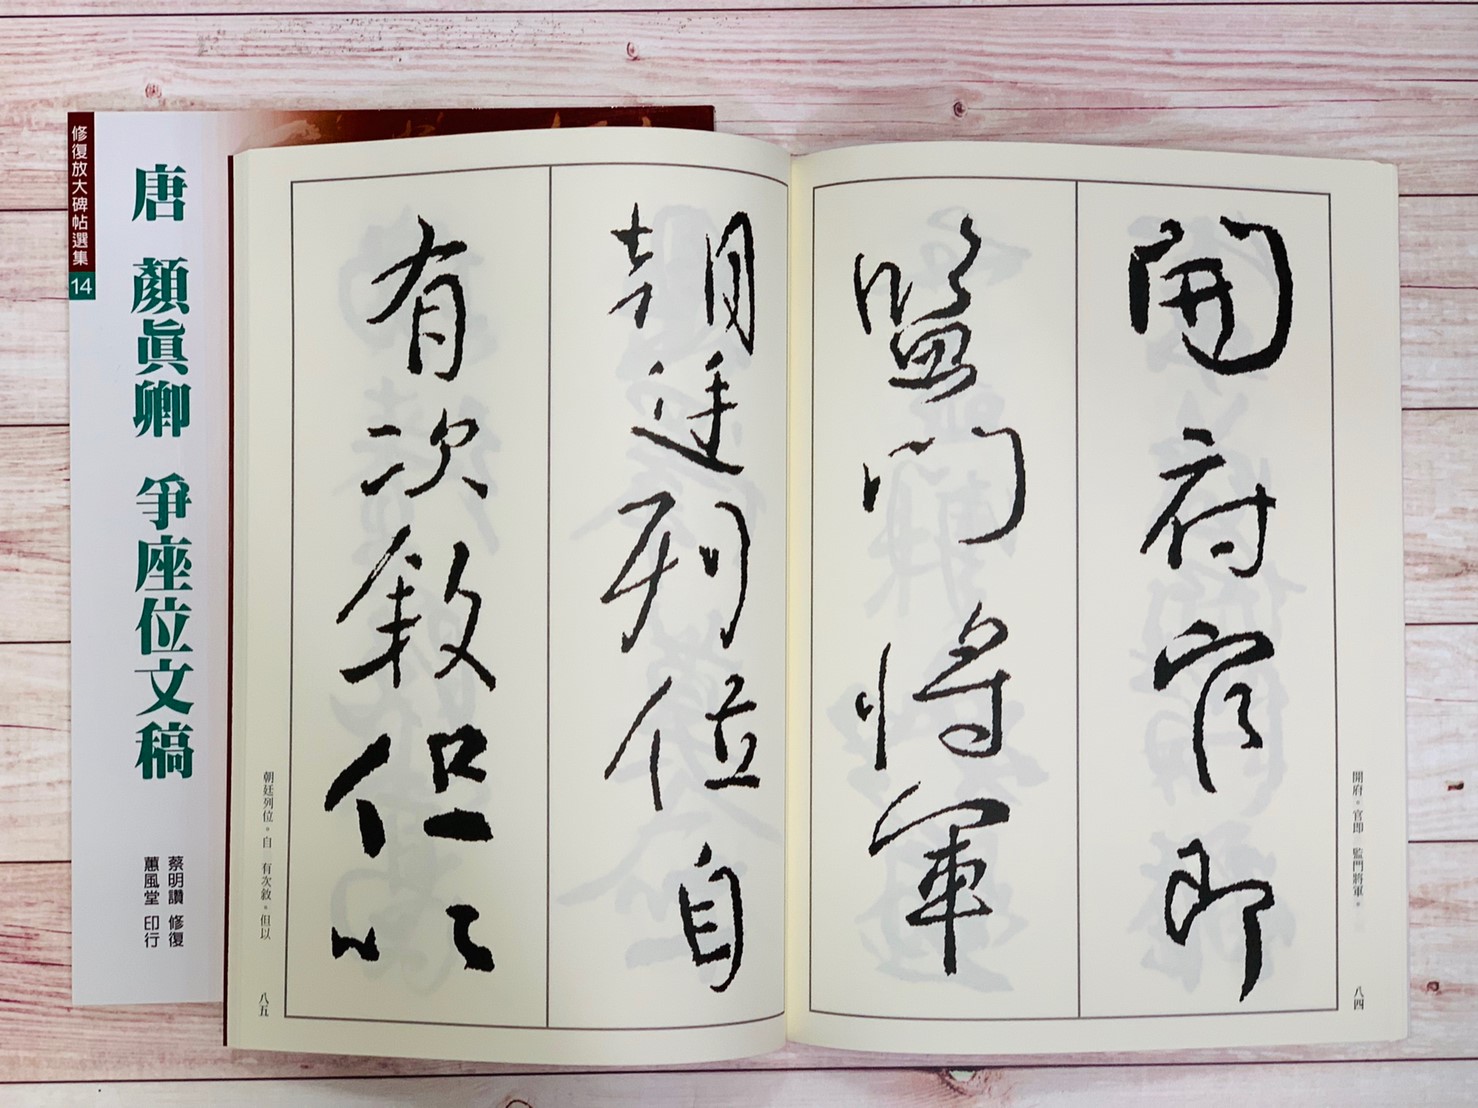 修復放大碑帖選集 14
唐 顏眞卿 爭座位文稿
蔡明讚 修復
蕙風堂 印行
開府官即
監門將軍
開府。官即 監門將軍。
八四
朝廷列位自
有次敘但以
朝廷列位。自 有次敘。但以
八五